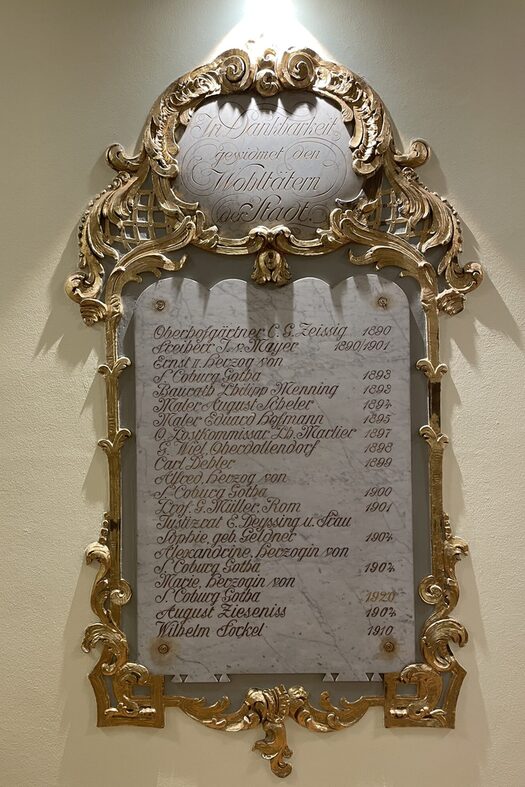 In Dankbarkeit
gewidmet den
Wohltätern
der Stadt.
Oberhofgärtner C. G. Zeissig 1890
Freiherr J. v. Mayer 1890/1901
Ernst II. Herzog von
S. Coburg Gotha 1893
Baurath Lbdwpp Menning 1893
Maler August Scheler 1894
Maler Eduard Hoffmann 1895
O. Postkommissar Lb. Martier 1897
G. Wiel, Oberdollendorf 1898
Carl Dehler 1899
Alfred, Herzog von
S. Coburg Gotha 1900
Prof. G. Müller, Rom 1901
Justizrat E. Deyssing u. Frau
Sophie, geb. Geldner 1904
Alexandrine, Herzogin von
S. Coburg Gotha 1904
Marie, Herzogin von
S. Coburg Gotha 1920
August Zieseniss 1904
Wilhelm Forkel 1910